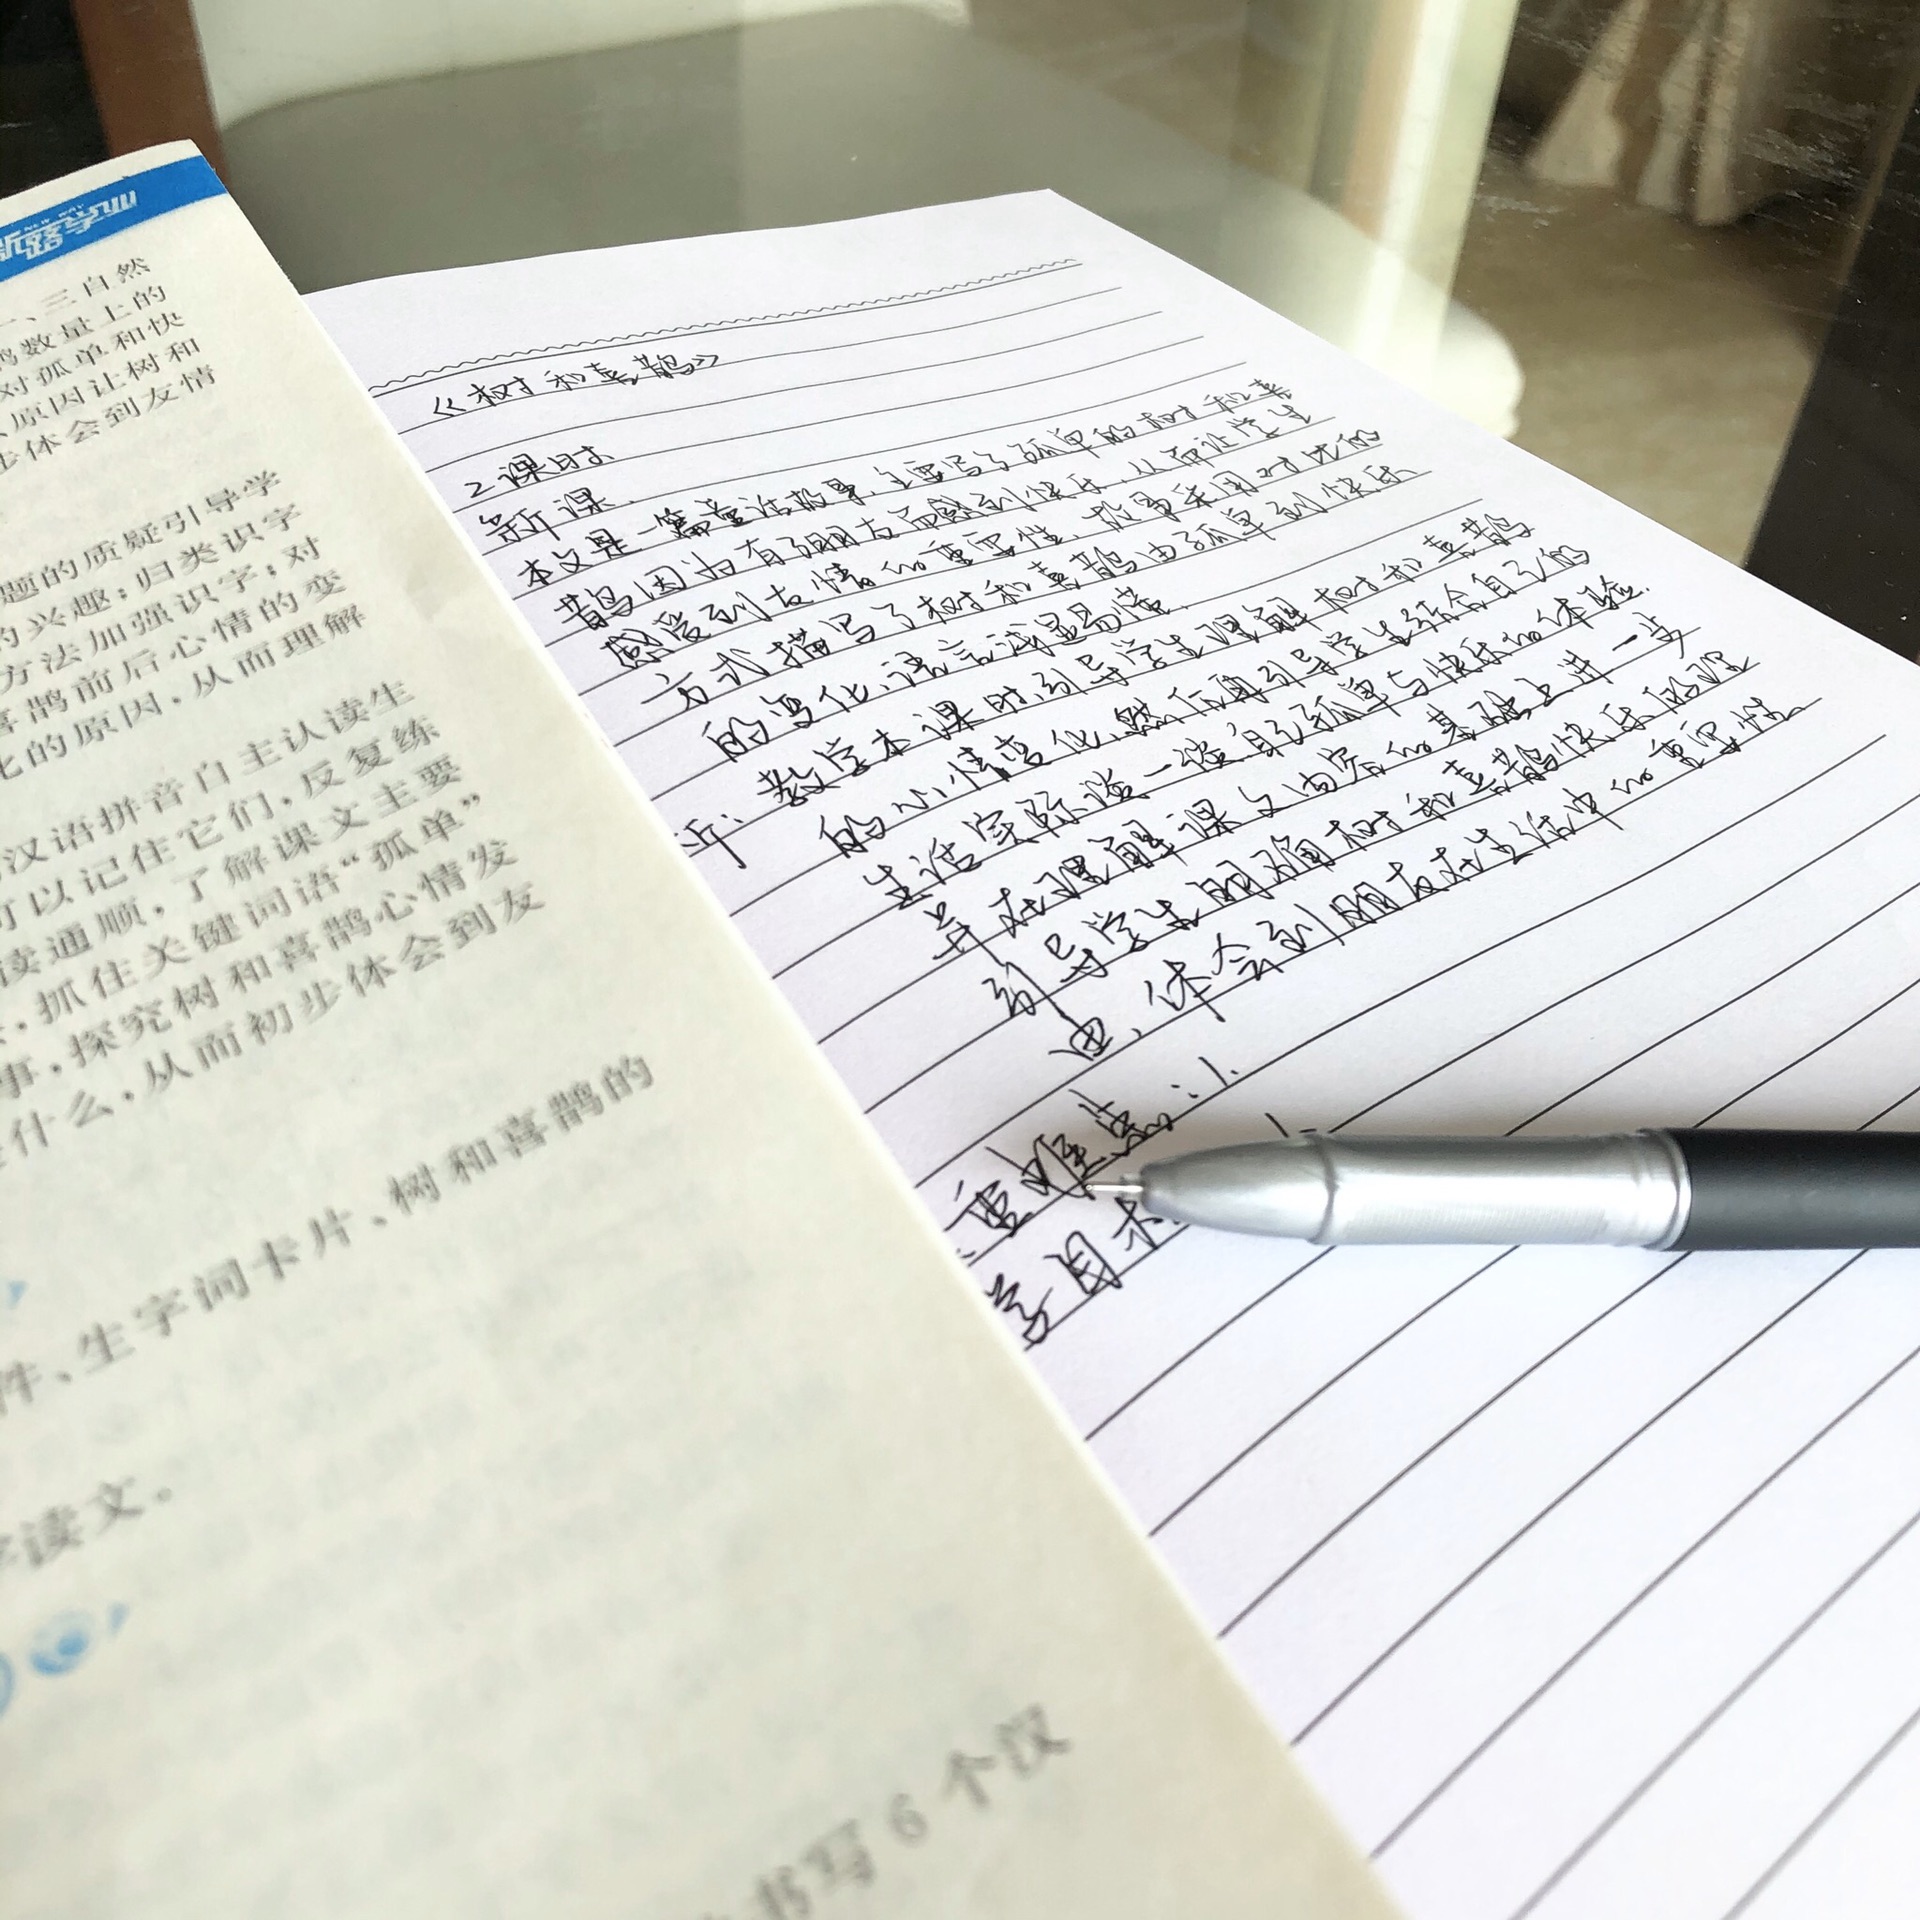 新路学业
一、三自然
鹊数量上的
对孤单和快
原因让树和
步体会到友情
题的质疑引导学
的兴趣；归类识字
方法加强识字；对
喜鹊前后心情的变
化的原因，从而理解
汉语拼音自主认读生
可以记住它们，反复练
读通顺，了解课文主要
，抓住关键词语“孤单”
事，探究树和喜鹊心情发
是什么，从而初步体会到友
件、生字词卡片、树和喜鹊的
读文。
书写6个汉
《树和喜鹊》
2课时
新课
本文是一篇童话故事，主要写了孤单的树和喜
鹊因为有了朋友而感到快乐，从而让学生
感受到友情的重要性，故事采用对比的
方式描写了树和喜鹊由孤单到快乐
的变化，语言浅显易懂。
教学本课时，引导学生理解树和喜鹊
析：的心情变化，然后再引导学生结合自己的
生活实际谈一谈自己孤单与快乐的体验，
并在理解课文内容的基础上进一步
引导学生明确树和喜鹊快乐的理
由，体会到朋友在生活中的重要性。
重难点：1.
学目标